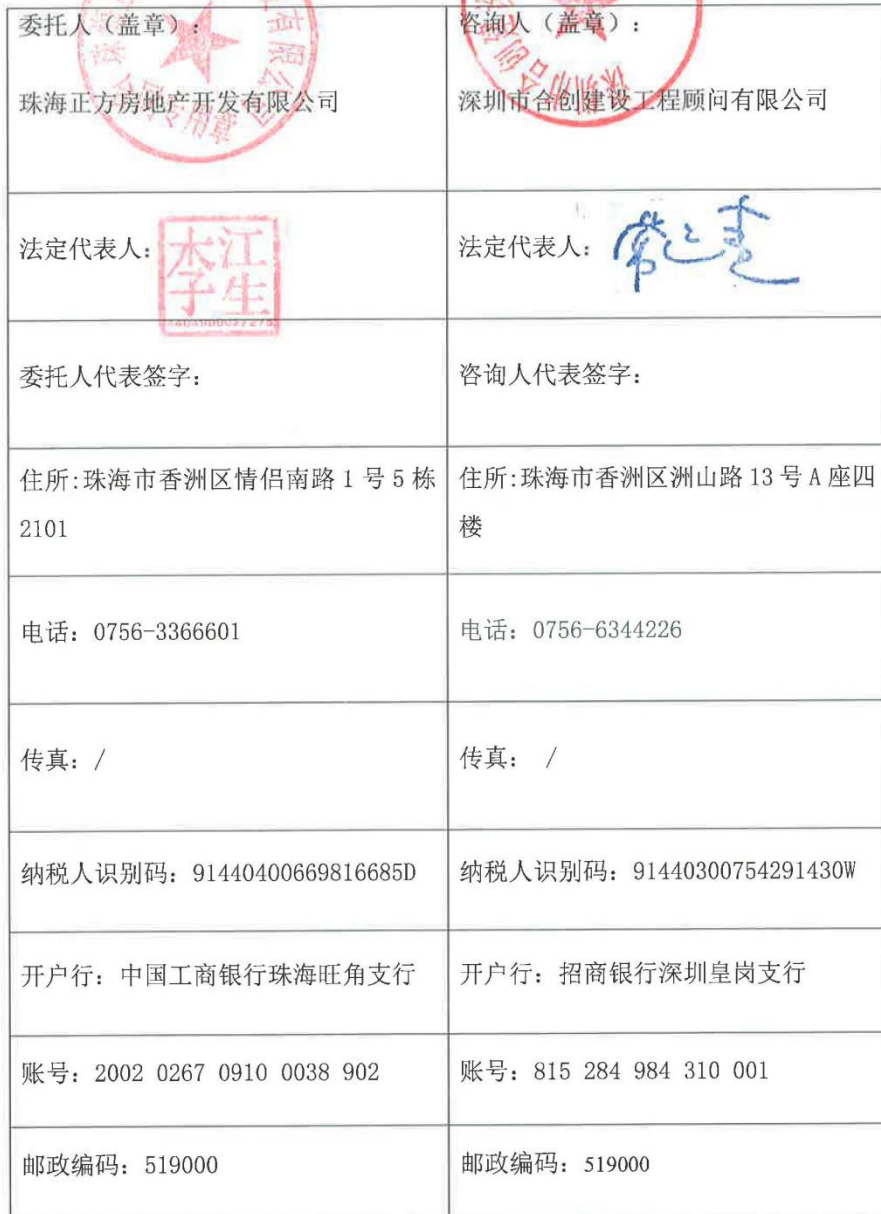 委托人（盖章）：
珠海正方房地产开发有限公司
咨询人（盖章）：
深圳市合创建设工程顾问有限公司
法定代表人：
李江生
法定代表人：
委托人代表签字：
咨询人代表签字：
住所:珠海市香洲区情侣南路 1 号 5 栋
2101
住所:珠海市香洲区洲山路 13 号 A 座四
楼
电话：0756-3366601
电话：0756-6344226
传真：/
传真： /
纳税人识别码：91440400669816685D
纳税人识别码：91440300754291430W
开户行：中国工商银行珠海旺角支行
开户行：招商银行深圳皇岗支行
账号：2002 0267 0910 0038 902
账号：815 284 984 310 001
邮政编码：519000
邮政编码：519000